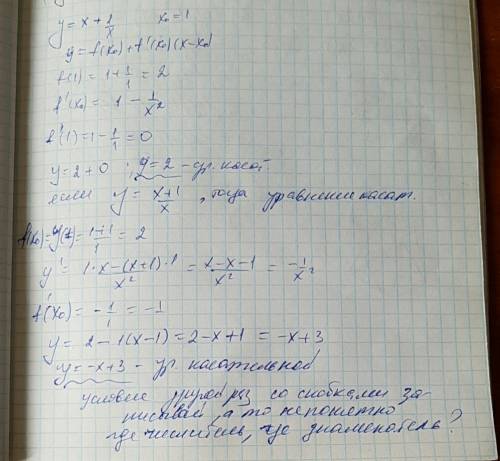 y = x + 1/x x₀ = 1
y = f(x₀) + f'(x₀)(x-x₀)
f(1) = 1 + 1/1 = 2
f'(x₀) = 1 - 1/x²
f'(1) = 1 - 1/1 = 0
y = 2 + 0 ; y = 2 - ур. касат.
если y = x+1/x , тогда уравнение касат.
f(x₀) = y(1) = 1+1/1 = 2
y' = 1·x-(x+1)·1/x² = x-x-1/x² = -1/x²
f'(x₀) = -1/1 = -1
y = 2 - 1(x-1) = 2-x+1 = -x+3
y = -x+3 - ур. касательной
условие другой раз со скобками за-
писывай, а то непонятно
где числитель, где знаменатель?